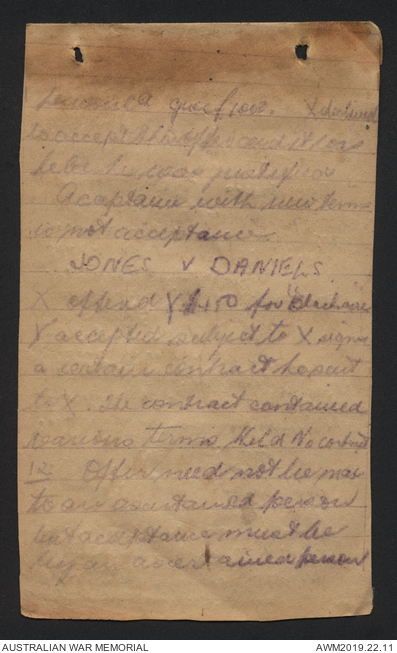 X declined
to accept the offer and it was
held he was justified
Acceptance with new terms
is not acceptance.
JONES V DANIELS
X offered Y £1450 for
Y accepted subject to X signing
a certain contract he sent
to X. The contract contained
various terms Held No contract
Offer need not be made
to an ascertained person
but acceptance must be
by an ascertained person
AUSTRALIAN WAR MEMORIAL
AWM2019.22.11